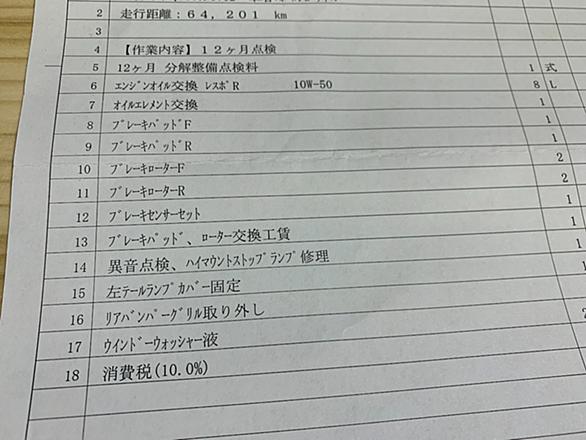 2 走行距離：64,201 km
3
4 【作業内容】12ヶ月点検
5 12ヶ月 分解整備点検料 1 式
6 ｴﾝｼﾞﾝｵｲﾙ交換 ﾚｽﾎﾟR 10W-50 8 L
7 ｵｲﾙｴﾚﾒﾝﾄ交換 1
8 ﾌﾞﾚｰｷﾊﾟｯﾄﾞF 1
9 ﾌﾞﾚｰｷﾊﾟｯﾄﾞR 1
10 ﾌﾞﾚｰｷﾛｰﾀｰF 2
11 ﾌﾞﾚｰｷﾛｰﾀｰR 2
12 ﾌﾞﾚｰｷｾﾝｻｰｾｯﾄ 1
13 ﾌﾞﾚｰｷﾊﾟｯﾄﾞ、ﾛｰﾀｰ交換工賃 1
14 異音点検、ﾊｲﾏｳﾝﾄｽﾄｯﾌﾟﾗﾝﾌﾟ修理 1
15 左ﾃｰﾙﾗﾝﾌﾟｶﾊﾞｰ固定 1
16 ﾘｱﾊﾞﾝﾊﾟｰｸﾞﾘﾙ取り外し
17 ｳｲﾝﾄﾞｰｳｫｯｼｬｰ液
18 消費税(10.0%)